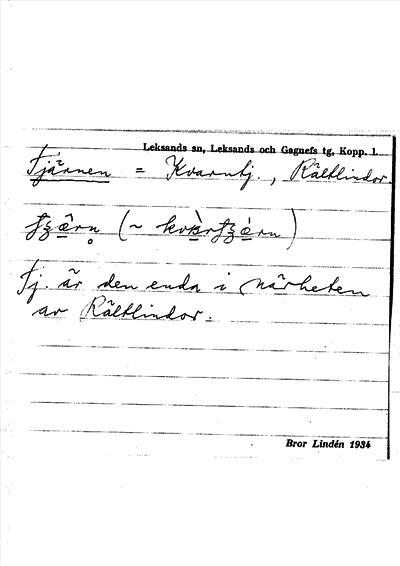 Leksands sn, Leksands och Gagnefs tg, Kopp. l.
Tjärnen = Kvarntj., Rältlindor.
Tj. är den enda i närheten
av Rältlindor.
Bror Lindén 1934